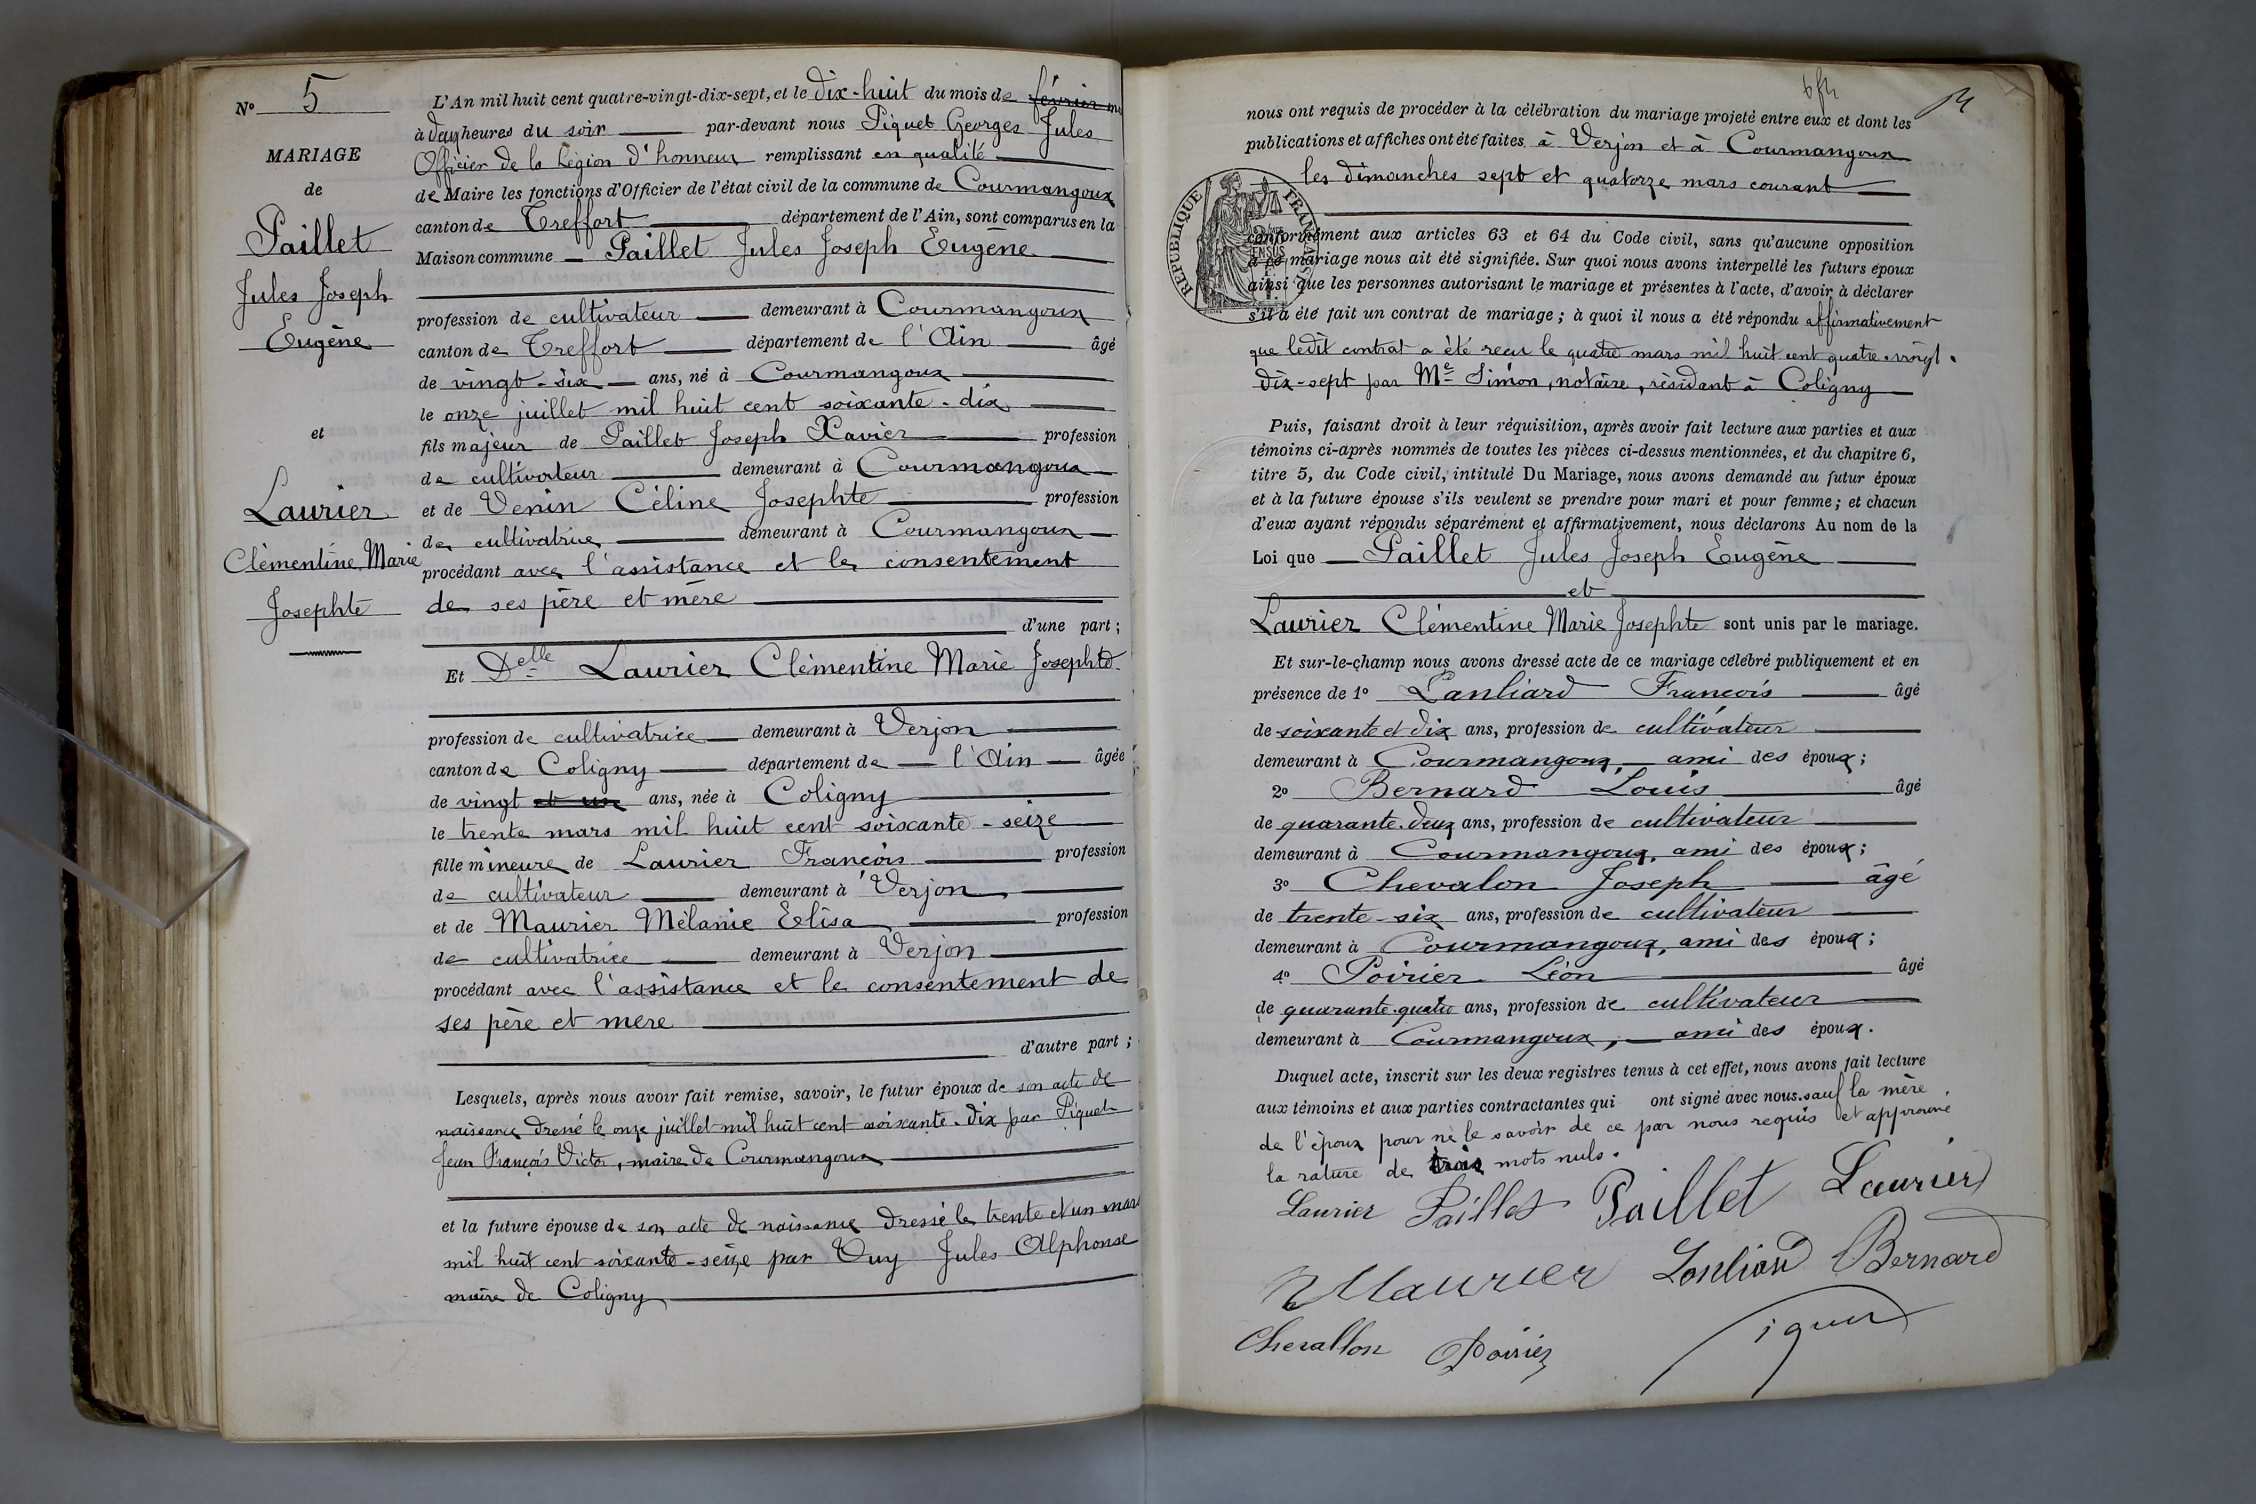 N° 5
MARIAGE
de
Paillet
Jules Joseph
Eugène
et
Laurier
Clémentine Marie
Josephte
L'An mil huit cent quatre-vingt-dix-sept, et le dix-huit du mois de février
à deux heures du soir par-devant nous Piquet Georges Jules
Officier de la Légion d'honneur remplissant en qualité
de Maire les fonctions d'Officier de l'état civil de la commune de Courmangoux
canton de Treffort département de l'Ain, sont comparus en la
Maison commune Paillet Jules Joseph Eugène
profession de cultivateur demeurant à Courmangoux
canton de Treffort département de l'Ain âgé
de vingt-six ans, né à Courmangoux
le onze juillet mil huit cent soixante-dix
fils majeur de Paillet Joseph Xavier profession
de cultivateur demeurant à Courmangoux
et de Venin Céline Josephte profession
de cultivatrice demeurant à Courmangoux
procédant avec l'assistance et le consentement
de ses père et mère
d'une part;
Et Delle Laurier Clémentine Marie Josephte
profession de cultivatrice demeurant à Verjon
canton de Coligny département de l'Ain âgée
de vingt et un ans, née à Coligny
le trente mars mil huit cent soixante-seize
fille mineure de Laurier François profession
de cultivateur demeurant à Verjon
et de Maurier Mélanie Elisa profession
de cultivatrice demeurant à Verjon
procédant avec l'assistance et le consentement de
ses père et mère
d'autre part;
Lesquels, après nous avoir fait remise, savoir, le futur époux de son acte de
naissance dressé le onze juillet mil huit cent soixante-dix par Piquet
Jean François Victor, maire de Courmangoux
et la future épouse de son acte de naissance dressé le trente et un mars
mil huit cent soixante-seize par Vuy Jules Alphonse
maire de Coligny
nous ont requis de procéder à la célébration du mariage projeté entre eux et dont les
publications et affiches ont été faites à Verjon et à Courmangoux
les dimanches sept et quatorze mars courant
RÉPUBLIQUE FRANÇAISE
conformément aux articles 63 et 64 du Code civil, sans qu'aucune opposition
à ce mariage nous ait été signifiée. Sur quoi nous avons interpellé les futurs époux
ainsi que les personnes autorisant le mariage et présentes à l'acte, d'avoir à déclarer
s'il a été fait un contrat de mariage; à quoi il nous a été répondu affirmativement
que ledit contrat a été reçu le quatre mars mil huit cent quatre-vingt-
dix-sept par Me Simon, notaire, résidant à Coligny
Puis, faisant droit à leur réquisition, après avoir fait lecture aux parties et aux
témoins ci-après nommés de toutes les pièces ci-dessus mentionnées, et du chapitre 6,
titre 5, du Code civil, intitulé Du Mariage, nous avons demandé au futur époux
et à la future épouse s'ils veulent se prendre pour mari et pour femme; et chacun
d'eux ayant répondu séparément et affirmativement, nous déclarons Au nom de la
Loi que Paillet Jules Joseph Eugène
et
Laurier Clémentine Marie Josephte sont unis par le mariage.
Et sur-le-champ nous avons dressé acte de ce mariage célébré publiquement et en
présence de 1° Lanliard François âgé
de soixante et dix ans, profession de cultivateur
demeurant à Courmangoux, ami des époux;
2° Bernard Louis âgé
de quarante-deux ans, profession de cultivateur
demeurant à Courmangoux, ami des époux;
3° Chevalon Joseph âgé
de trente-six ans, profession de cultivateur
demeurant à Courmangoux, ami des époux;
4° Poirier Léon âgé
de quarante-quatre ans, profession de cultivateur
demeurant à Courmangoux, ami des époux.
Duquel acte, inscrit sur les deux registres tenus à cet effet, nous avons fait lecture
aux témoins et aux parties contractantes qui ont signé avec nous. sauf la mère
de l'époux pour ne le savoir de ce par nous requis et approuvé
la rature de trois mots nuls.
Laurier Paillet Paillet Laurier
Maurier Lanliard Bernard
Chevallon Poirier